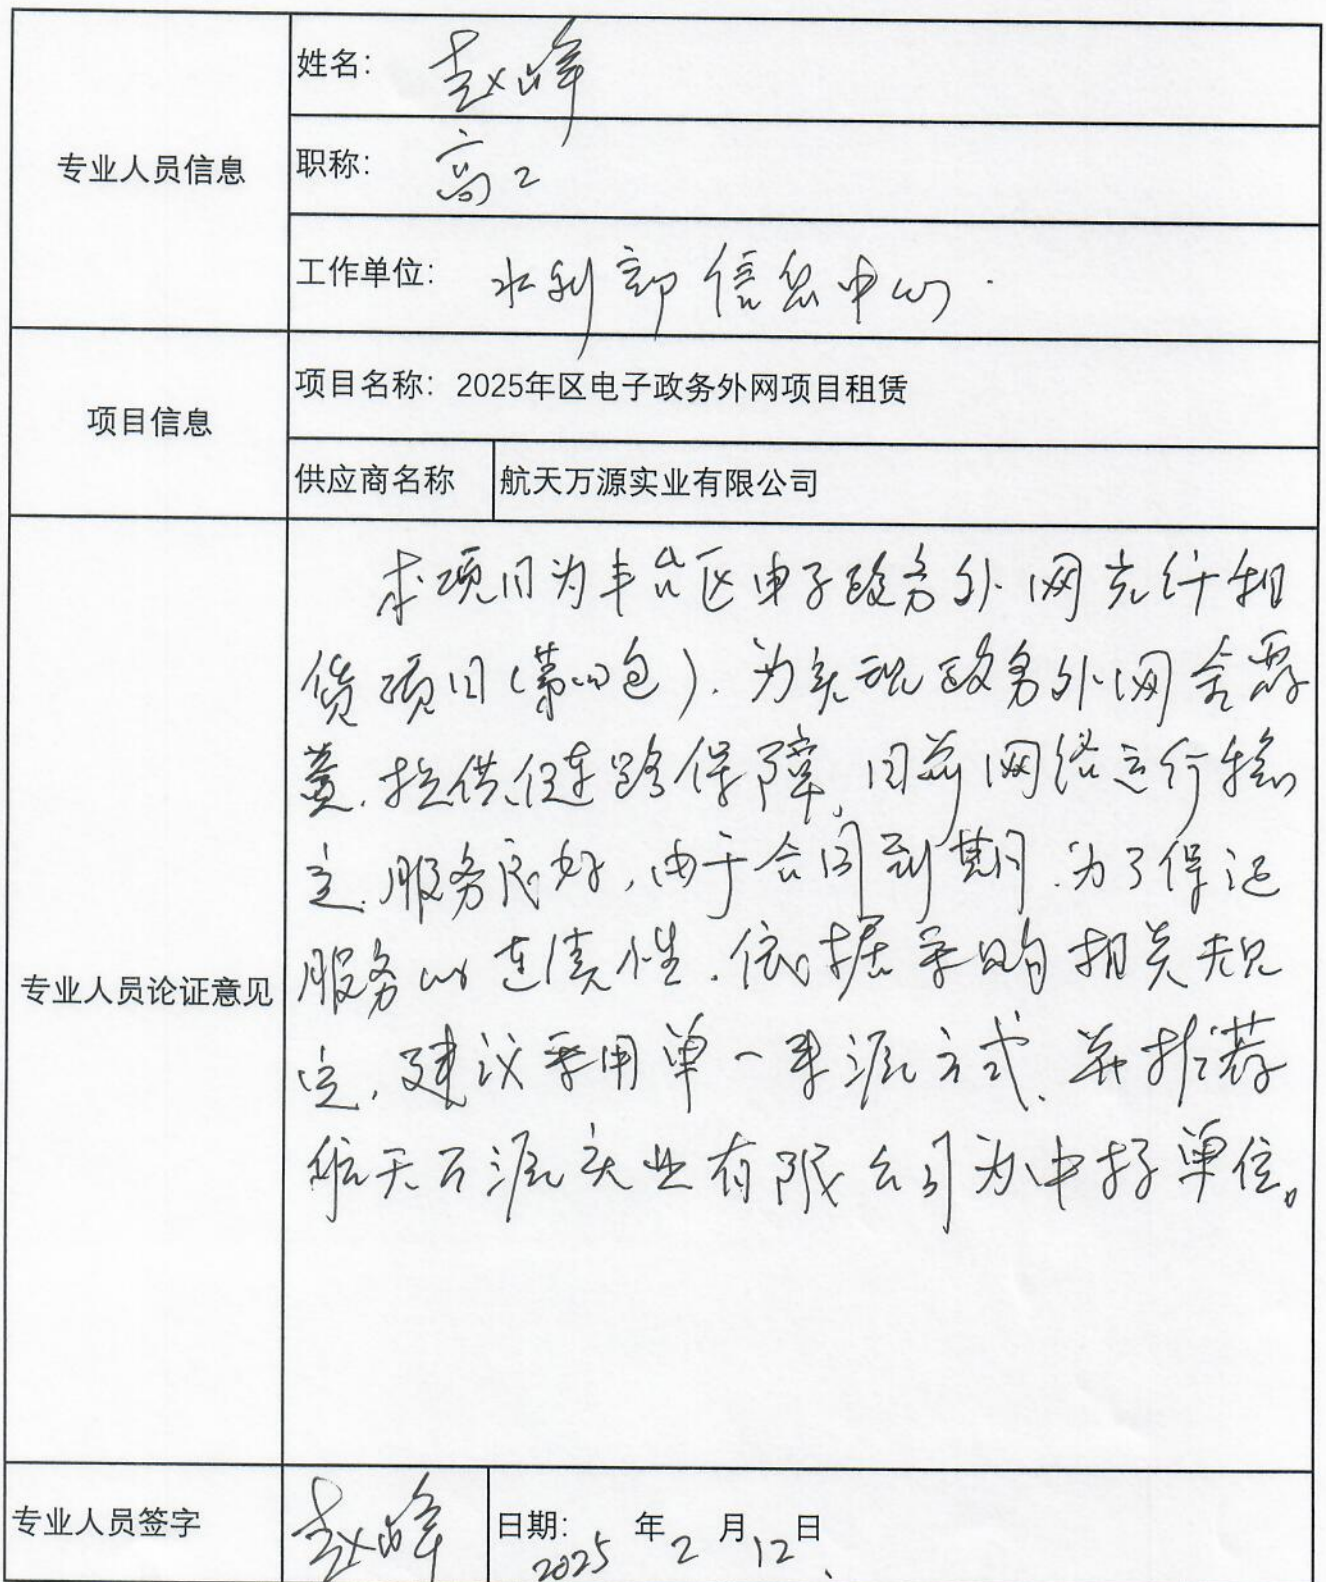 姓名：赵峰
职称：高工
专业人员信息
工作单位：水利部信息中心.
项目名称：2025年区电子政务外网项目租赁
项目信息
供应商名称 航天万源实业有限公司
本项目为丰台区电子政务外网光纤租
赁项目(第四包).为实现政务外网全覆
盖.提供链路保障,目前网络运行稳
定.服务良好,由于合同到期.为了保证
服务的连续性.依据采购相关规
专业人员论证意见
定,建议采用单一来源方式.并推荐
航天万源实业有限公司为中标单位。
专业人员签字 赵峰 日期：2025年2月12日